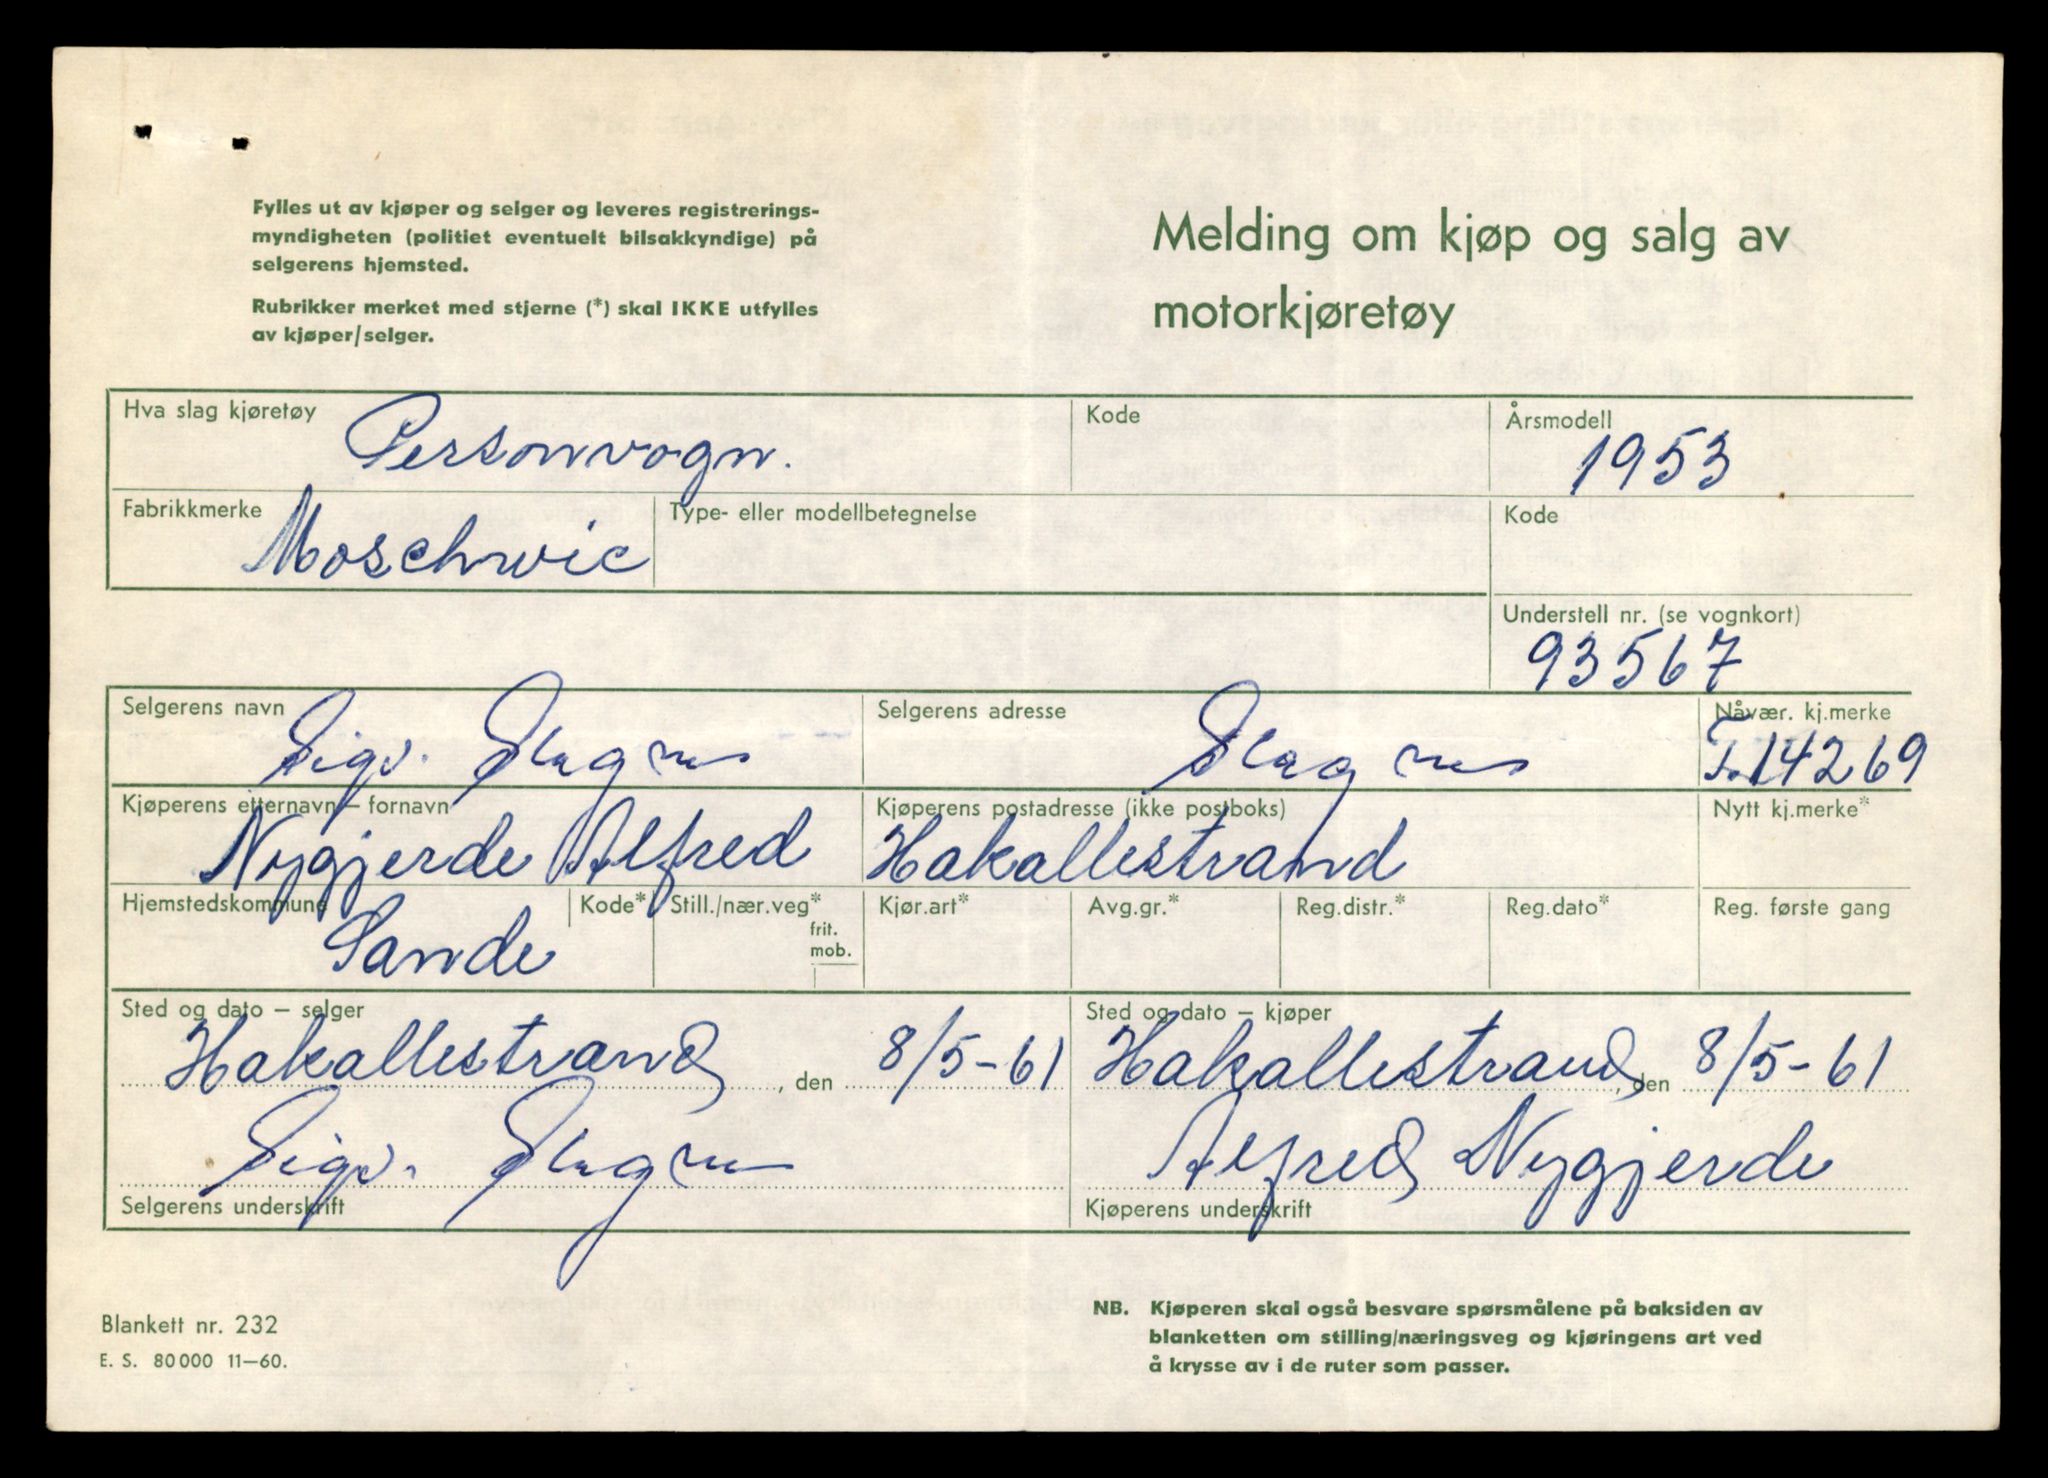 Fylles ut av kjøper og selger og leveres registrerings-
myndigheten (politiet eventuelt bilsakkyndige) på
selgerens hjemsted.
Rubrikker merket med stjerne (*) skal IKKE utfylles
av kjøper/selger.
Melding om kjøp og salg av
motorkjøretøy
Hva slag kjøretøy Personvogn. Kode Årsmodell 1953
Fabrikkmerke Moschwic Type- eller modellbetegnelse Kode
Understell nr. (se vognkort)
93567
Selgerens navn Sigv. Slagnes Selgerens adresse Slagnes Nåvær. kj.merke T.14269
Kjøperens etternavn – fornavn Nygjerde Alfred Kjøperens postadresse (ikke postboks) Hakallestrand Nytt kj.merke*
Hjemstedskommune Sande Kode* Still./nær.veg* frit. mob. Kjør.art* Avg.gr.* Reg.distr.* Reg.dato* Reg. første gang
Sted og dato – selger Sted og dato – kjøper
Hakallestrand, den 8/5-61 Hakallestrand, den 8/5-61
Sigv. Slagnes Alfred Nygjerde
Selgerens underskrift Kjøperens underskrift
Blankett nr. 232
E. S. 80000 11–60.
NB. Kjøperen skal også besvare spørsmålene på baksiden av
blanketten om stilling/næringsveg og kjøringens art ved
å krysse av i de ruter som passer.